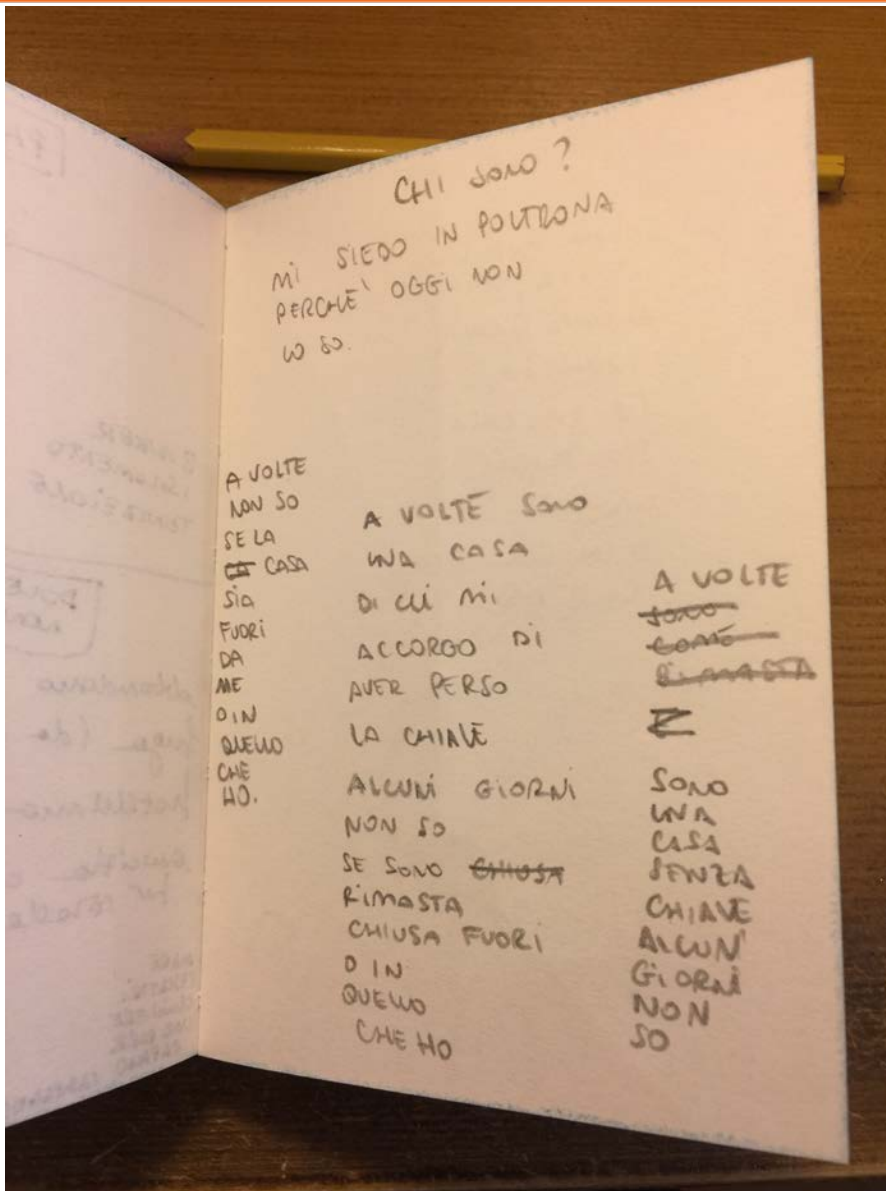 CHI SONO?
MI SIEDO IN POLTRONA
PERCHE' OGGI NON
LO SO.
A VOLTE
NON SO
SE LA
LA CASA
SIA
FUORI
DA
ME
O IN
QUELLO
CHE
HO.
A VOLTE SONO
UNA CASA
DI CUI MI
ACCORGO DI
AVER PERSO
LA CHIAVE
ALCUNI GIORNI
NON SO
SE SONO CHIUSA
RIMASTA
CHIUSA FUORI
O IN
QUELLO
CHE HO
A VOLTE
SONO
COME
RIMASTA
SONO
UNA
CASA
SENZA
CHIAVE
ALCUNI
GIORNI
NON
SO